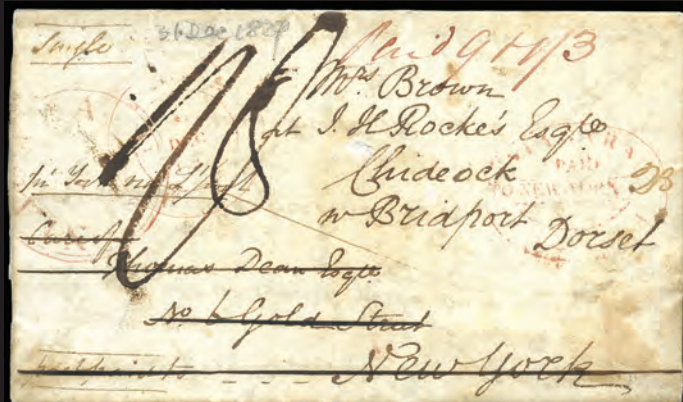 31 Dec 1827
Single
Paid 9 + 1/3
Mrs Brown
at J. H. Rocke's Esqre
Chideock
nr Bridport
Dorset
PAID
TO NEW YORK
Care of
Thomas Dean Esqre
No 6 Gold Street
New York